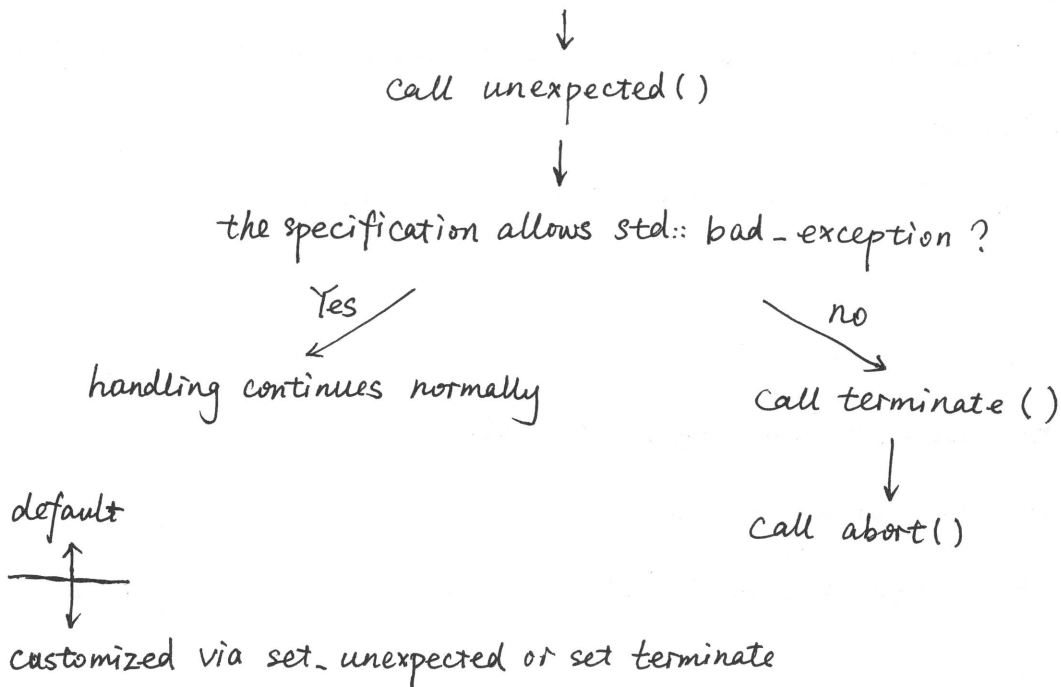 call unexpected()
the specification allows std:: bad_exception ?
Yes
no
handling continues normally
call terminate ()
default
call abort()
customized via set_unexpected or set terminate